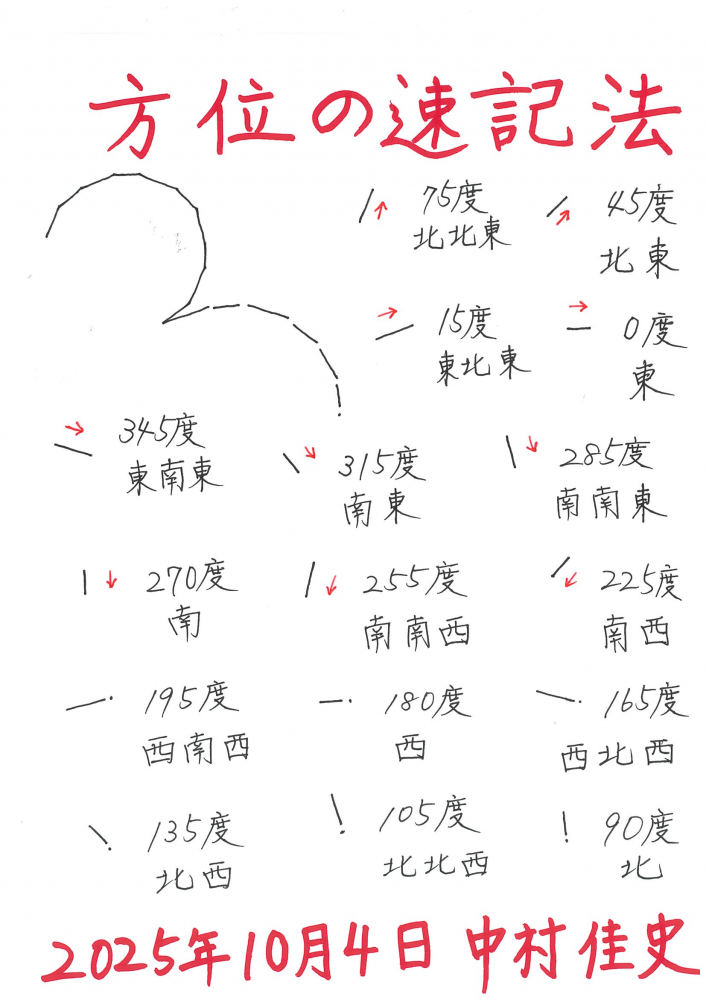 方位の速記法
75度 45度
北北東 北東
15度 0度
東北東 東
345度 315度 285度
東南東 南東 南南東
270度 255度 225度
南 南南西 南西
195度 180度 165度
西南西 西 西北西
135度 105度 90度
北西 北北西 北
2025年10月4日 中村佳史